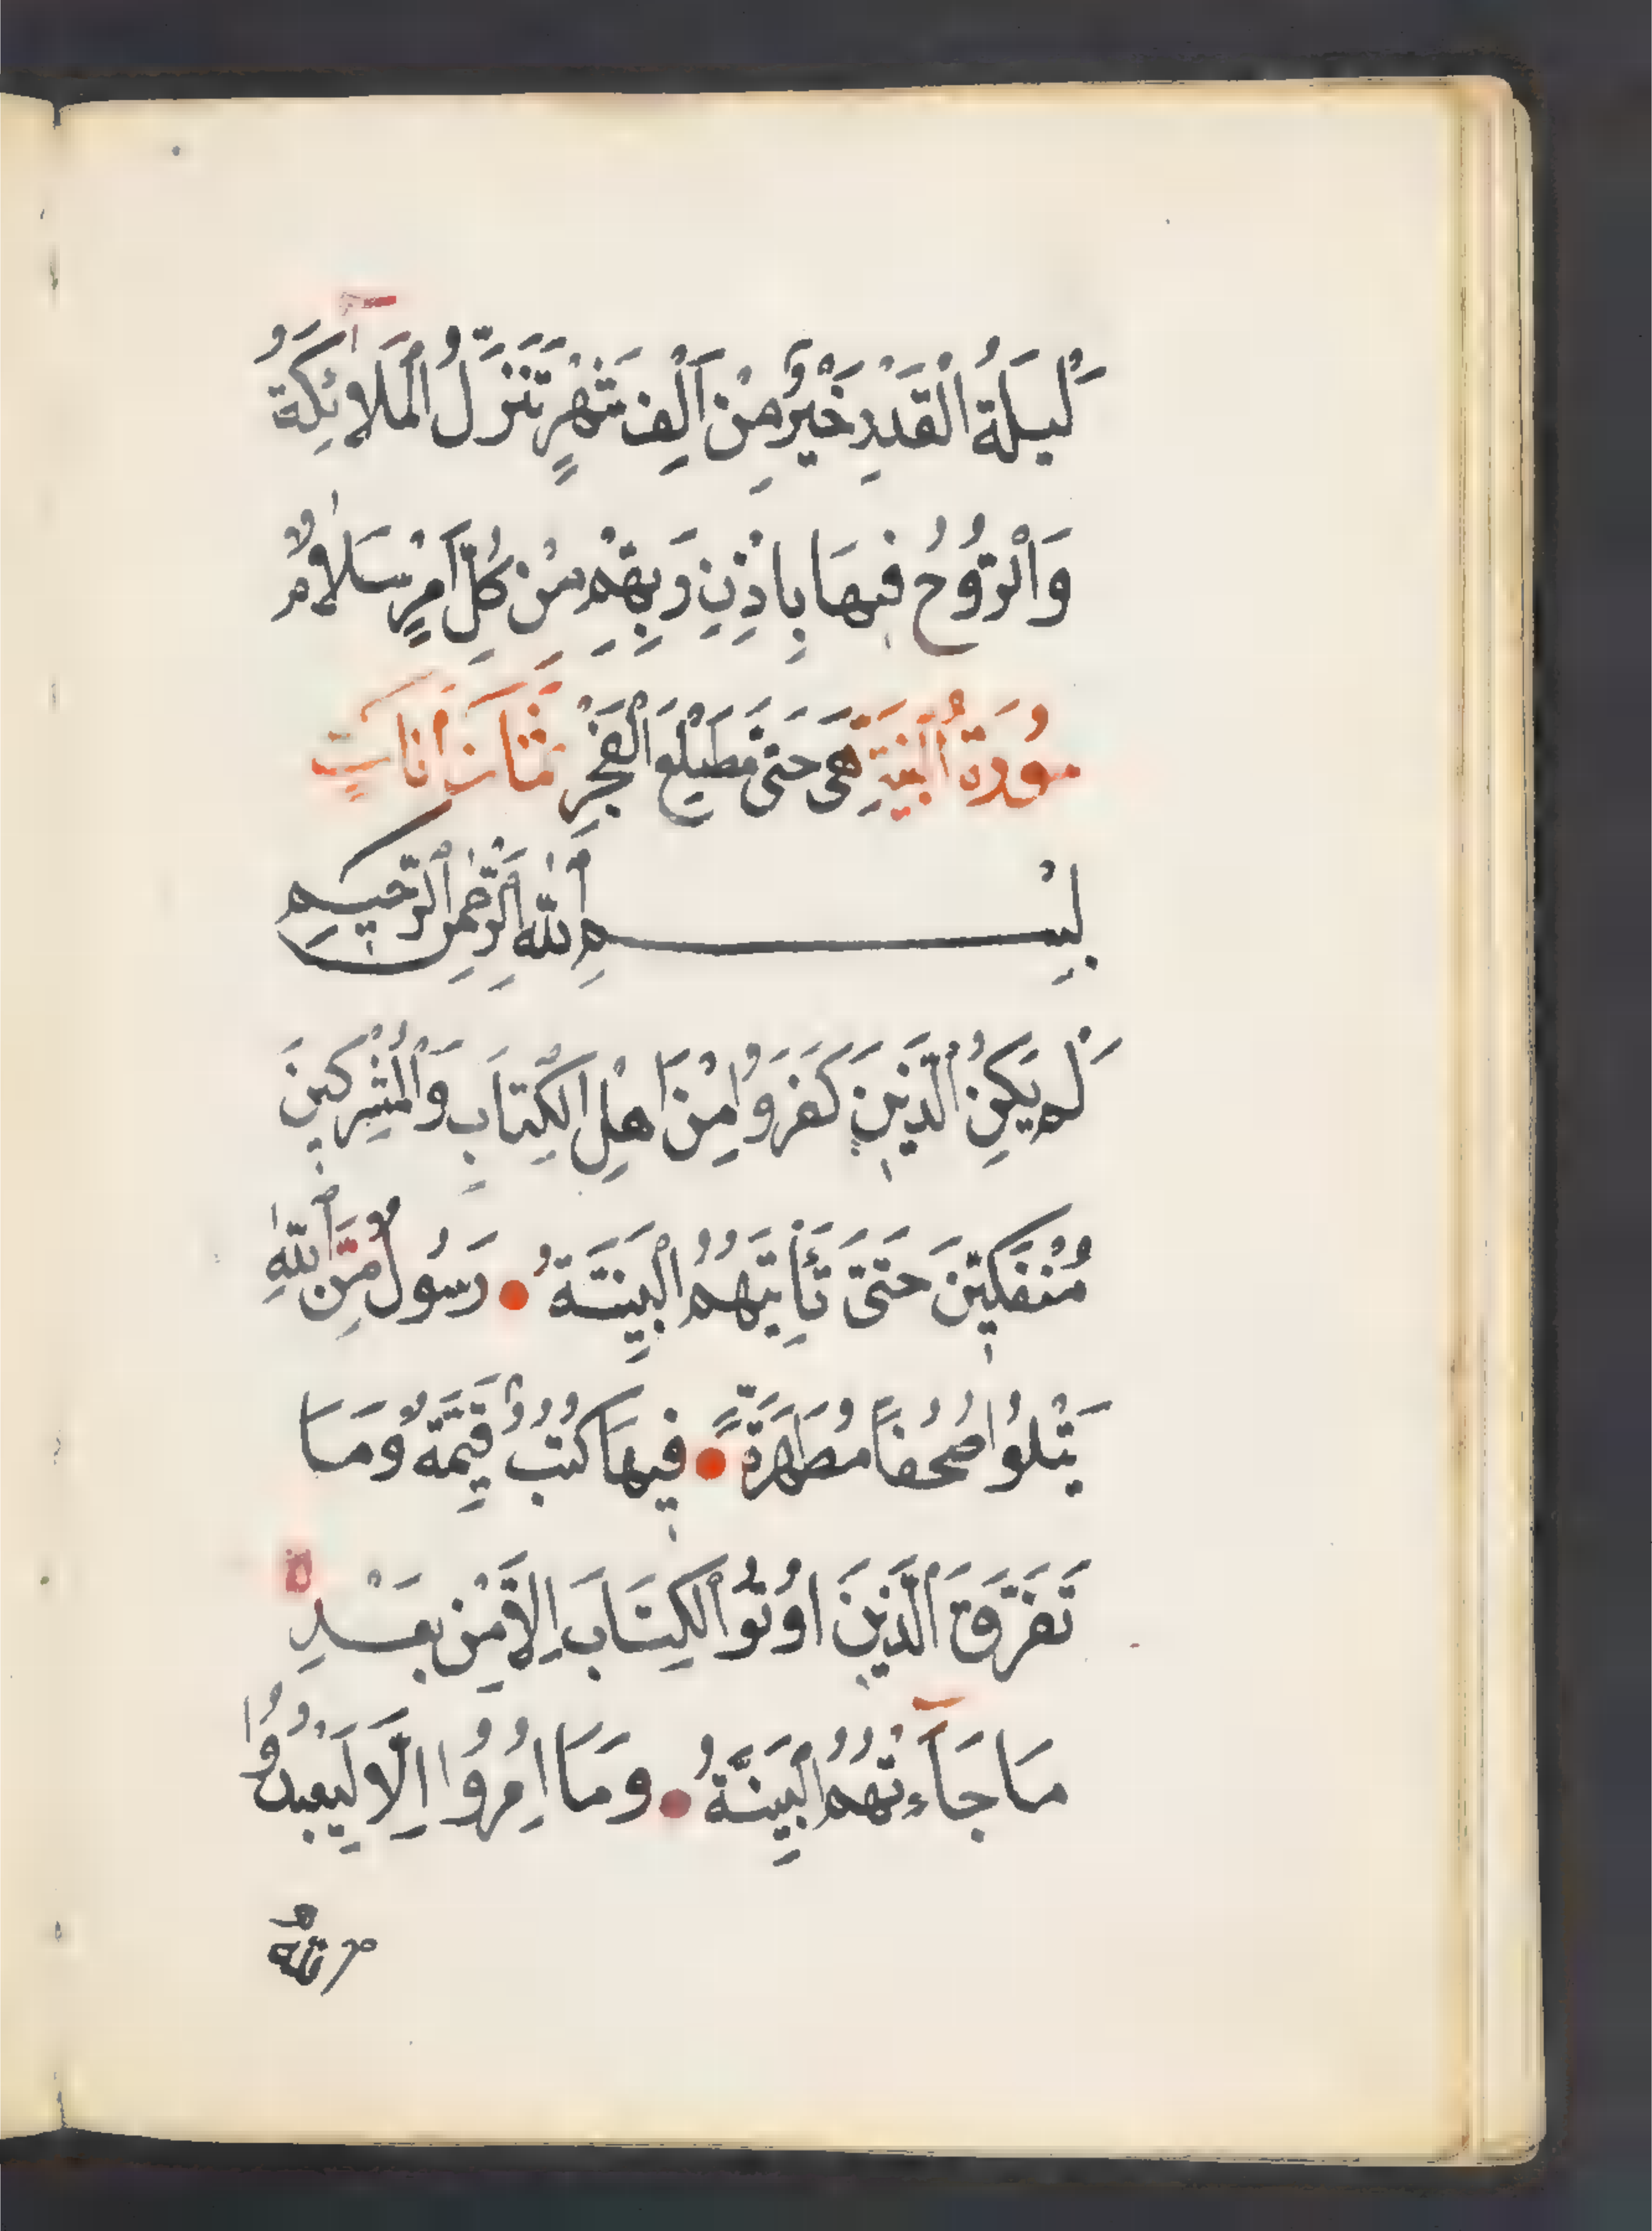 لَيْلَةُ الْقَدْرِ خَيْرٌ مِنْ اَلْفِ شَهْرٍ تَنَزَّلُ الْمَلَائِكَةُ
وَالرُّوحُ فِيهَا بِاذْنِ رَبِّهِمْ مِنْ كُلِّ اَمْرٍ سَلَامٌ
سُورَةُ الْبَيِّنَةِ هِىَ حَتَّى مَطْلَعِ الْفَجْرِ ثَمَانَ اٰيَاتٍ
بِسْمِ اللّٰهِ الرَّحْمٰنِ الرَّحِيمِ
لَمْ يَكُنِ الَّذِينَ كَفَرُوا مِنْ اَهْلِ الْكِتَابِ وَالْمُشْرِكِينَ
مُنْفَكِّينَ حَتَّى تَأْتِيَهُمُ الْبَيِّنَةُ رَسُولٌ مِّنَ اللّٰهِ
يَتْلُوا صُحُفًا مُطَهَّرَةً فِيهَا كُتُبٌ قَيِّمَةٌ وَمَا
تَفَرَّقَ الَّذِينَ اُوتُوا الْكِتَابَ اِلَّا مِنْ بَعْدِ
مَا جَآءَتْهُمُ الْبَيِّنَةُ وَمَا اُمِرُوا اِلَّا لِيَعْبُدُوا